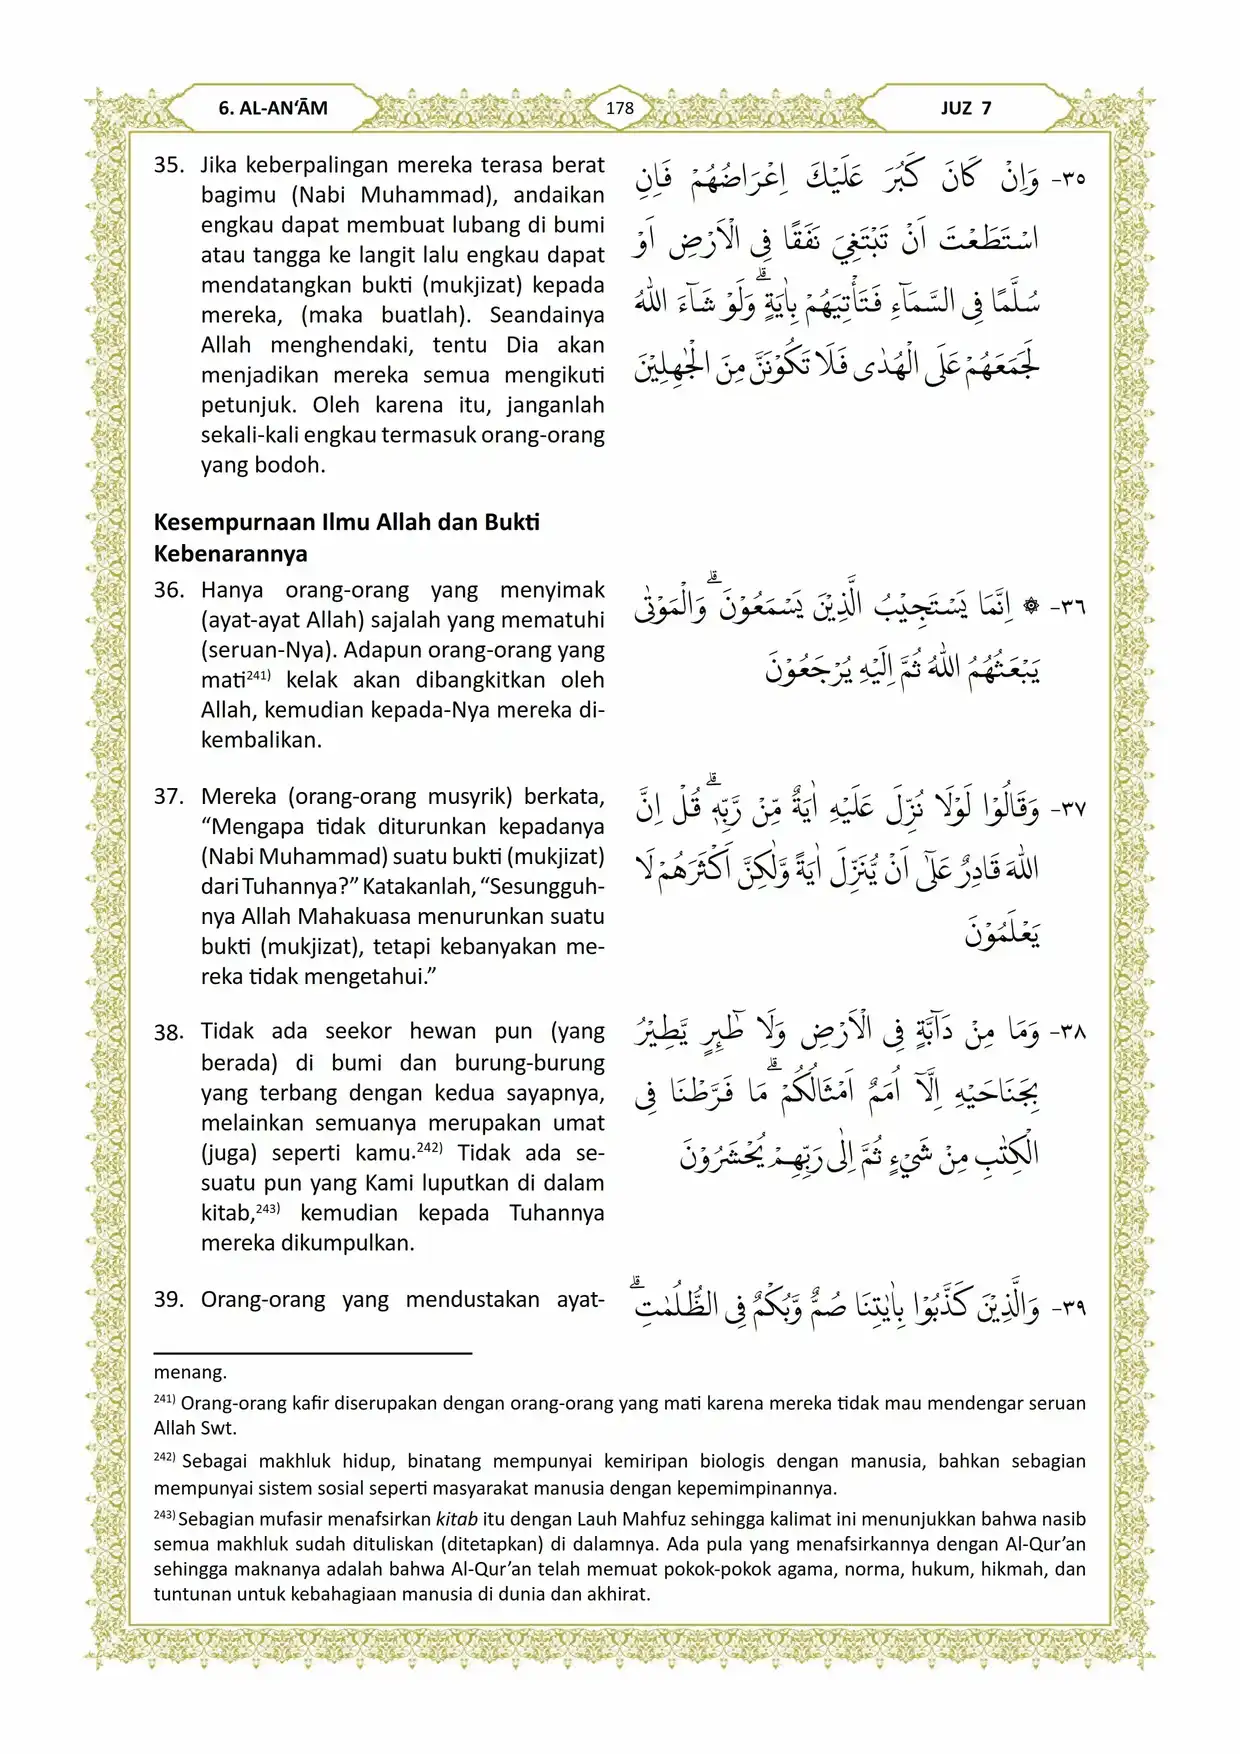 6. AL-AN‘ĀM
178
JUZ 7
35. Jika keberpalingan mereka terasa berat
bagimu (Nabi Muhammad), andaikan
engkau dapat membuat lubang di bumi
atau tangga ke langit lalu engkau dapat
mendatangkan bukti (mukjizat) kepada
mereka, (maka buatlah). Seandainya
Allah menghendaki, tentu Dia akan
menjadikan mereka semua mengikuti
petunjuk. Oleh karena itu, janganlah
sekali-kali engkau termasuk orang-orang
yang bodoh.
٣٥- وَاِنْ كَانَ كَبُرَ عَلَيْكَ اِعْرَاضُهُمْ فَاِنِ
اسْتَطَعْتَ اَنْ تَبْتَغِيَ نَفَقًا فِى الْاَرْضِ اَوْ
سُلَّمًا فِى السَّمَاۤءِ فَتَأْتِيَهُمْ بِاٰيَةٍ ۗوَلَوْ شَاۤءَ اللّٰهُ
لَجَمَعَهُمْ عَلَى الْهُدٰى فَلَا تَكُوْنَنَّ مِنَ الْجٰهِلِيْنَ
Kesempurnaan Ilmu Allah dan Bukti
Kebenarannya
36. Hanya orang-orang yang menyimak
(ayat-ayat Allah) sajalah yang mematuhi
(seruan-Nya). Adapun orang-orang yang
mati²⁴¹⁾ kelak akan dibangkitkan oleh
Allah, kemudian kepada-Nya mereka di-
kembalikan.
٣٦- ۞ اِنَّمَا يَسْتَجِيْبُ الَّذِيْنَ يَسْمَعُوْنَ ۗوَالْمَوْتٰى
يَبْعَثُهُمُ اللّٰهُ ثُمَّ اِلَيْهِ يُرْجَعُوْنَ
37. Mereka (orang-orang musyrik) berkata,
“Mengapa tidak diturunkan kepadanya
(Nabi Muhammad) suatu bukti (mukjizat)
dari Tuhannya?” Katakanlah, “Sesungguh-
nya Allah Mahakuasa menurunkan suatu
bukti (mukjizat), tetapi kebanyakan me-
reka tidak mengetahui.”
٣٧- وَقَالُوْا لَوْلَا نُزِّلَ عَلَيْهِ اٰيَةٌ مِّنْ رَّبِّهٖ ۗ قُلْ اِنَّ
اللّٰهَ قَادِرٌ عَلٰٓى اَنْ يُّنَزِّلَ اٰيَةً وَّلٰكِنَّ اَكْثَرَهُمْ لَا
يَعْلَمُوْنَ
38. Tidak ada seekor hewan pun (yang
berada) di bumi dan burung-burung
yang terbang dengan kedua sayapnya,
melainkan semuanya merupakan umat
(juga) seperti kamu.²⁴²⁾ Tidak ada se-
suatu pun yang Kami luputkan di dalam
kitab,²⁴³⁾ kemudian kepada Tuhannya
mereka dikumpulkan.
٣٨- وَمَا مِنْ دَاۤبَّةٍ فِى الْاَرْضِ وَلَا طٰۤىِٕرٍ يَّطِيْرُ
بِجَنَاحَيْهِ اِلَّآ اُمَمٌ اَمْثَالُكُمْ ۗ مَا فَرَّطْنَا فِى
الْكِتٰبِ مِنْ شَيْءٍ ثُمَّ اِلٰى رَبِّهِمْ يُحْشَرُوْنَ
39. Orang-orang yang mendustakan ayat-
٣٩- وَالَّذِيْنَ كَذَّبُوْا بِاٰيٰتِنَا صُمٌّ وَّبُكْمٌ فِى الظُّلُمٰتِۗ
menang.
²⁴¹⁾ Orang-orang kafir diserupakan dengan orang-orang yang mati karena mereka tidak mau mendengar seruan
Allah Swt.
²⁴²⁾ Sebagai makhluk hidup, binatang mempunyai kemiripan biologis dengan manusia, bahkan sebagian
mempunyai sistem sosial seperti masyarakat manusia dengan kepemimpinannya.
²⁴³⁾ Sebagian mufasir menafsirkan kitab itu dengan Lauh Mahfuz sehingga kalimat ini menunjukkan bahwa nasib
semua makhluk sudah dituliskan (ditetapkan) di dalamnya. Ada pula yang menafsirkannya dengan Al-Qur’an
sehingga maknanya adalah bahwa Al-Qur’an telah memuat pokok-pokok agama, norma, hukum, hikmah, dan
tuntunan untuk kebahagiaan manusia di dunia dan akhirat.